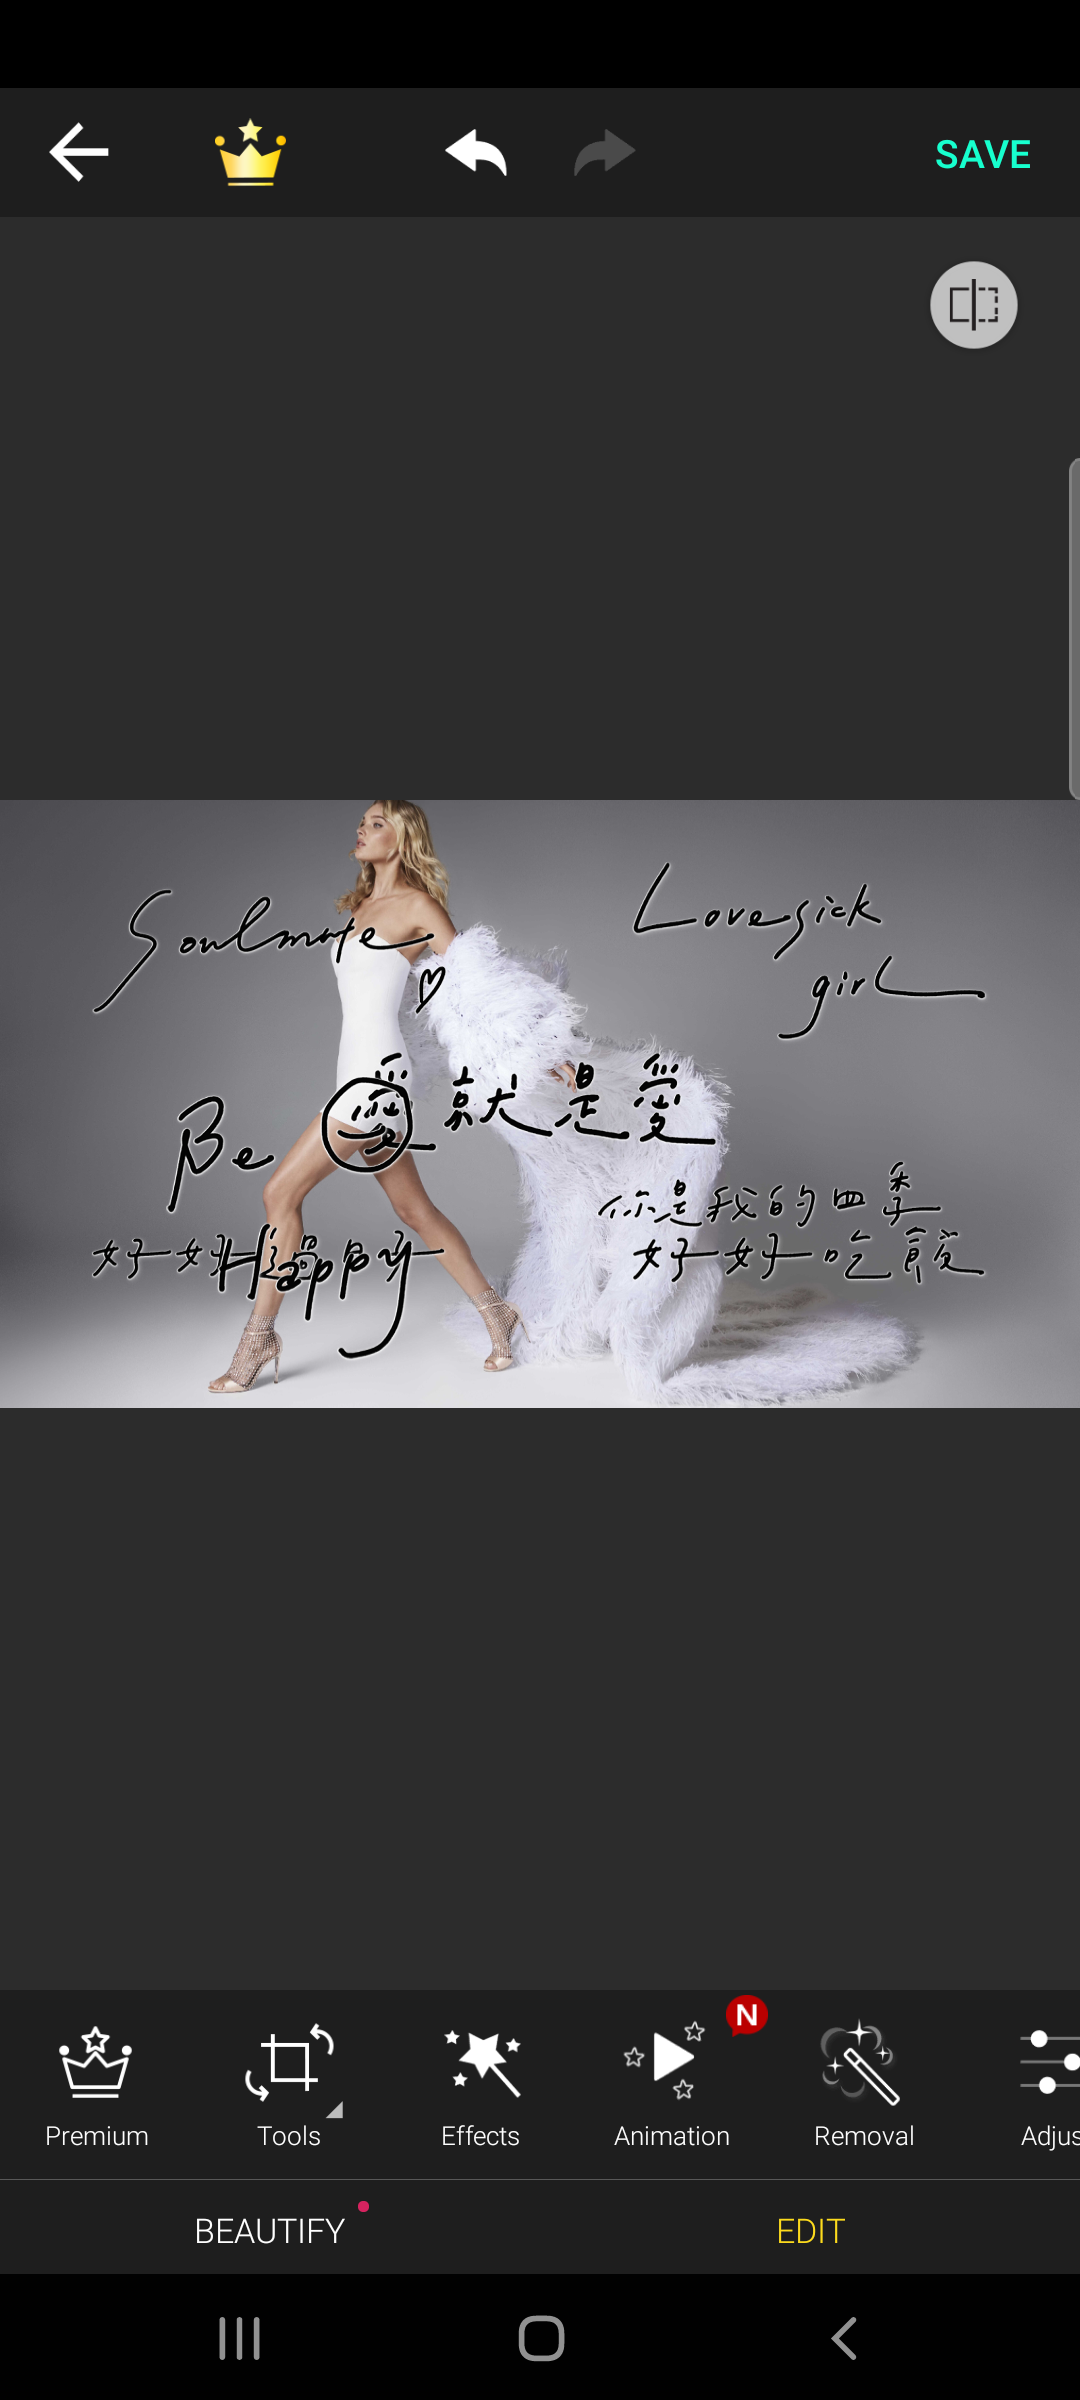 SAVE
Soulmate
Lovesick
girl
愛就是愛
Be
你是我的四季
好好
Happy
好好吃飯
N
Premium
Tools
Effects
Animation
Removal
Adjus
BEAUTIFY
EDIT